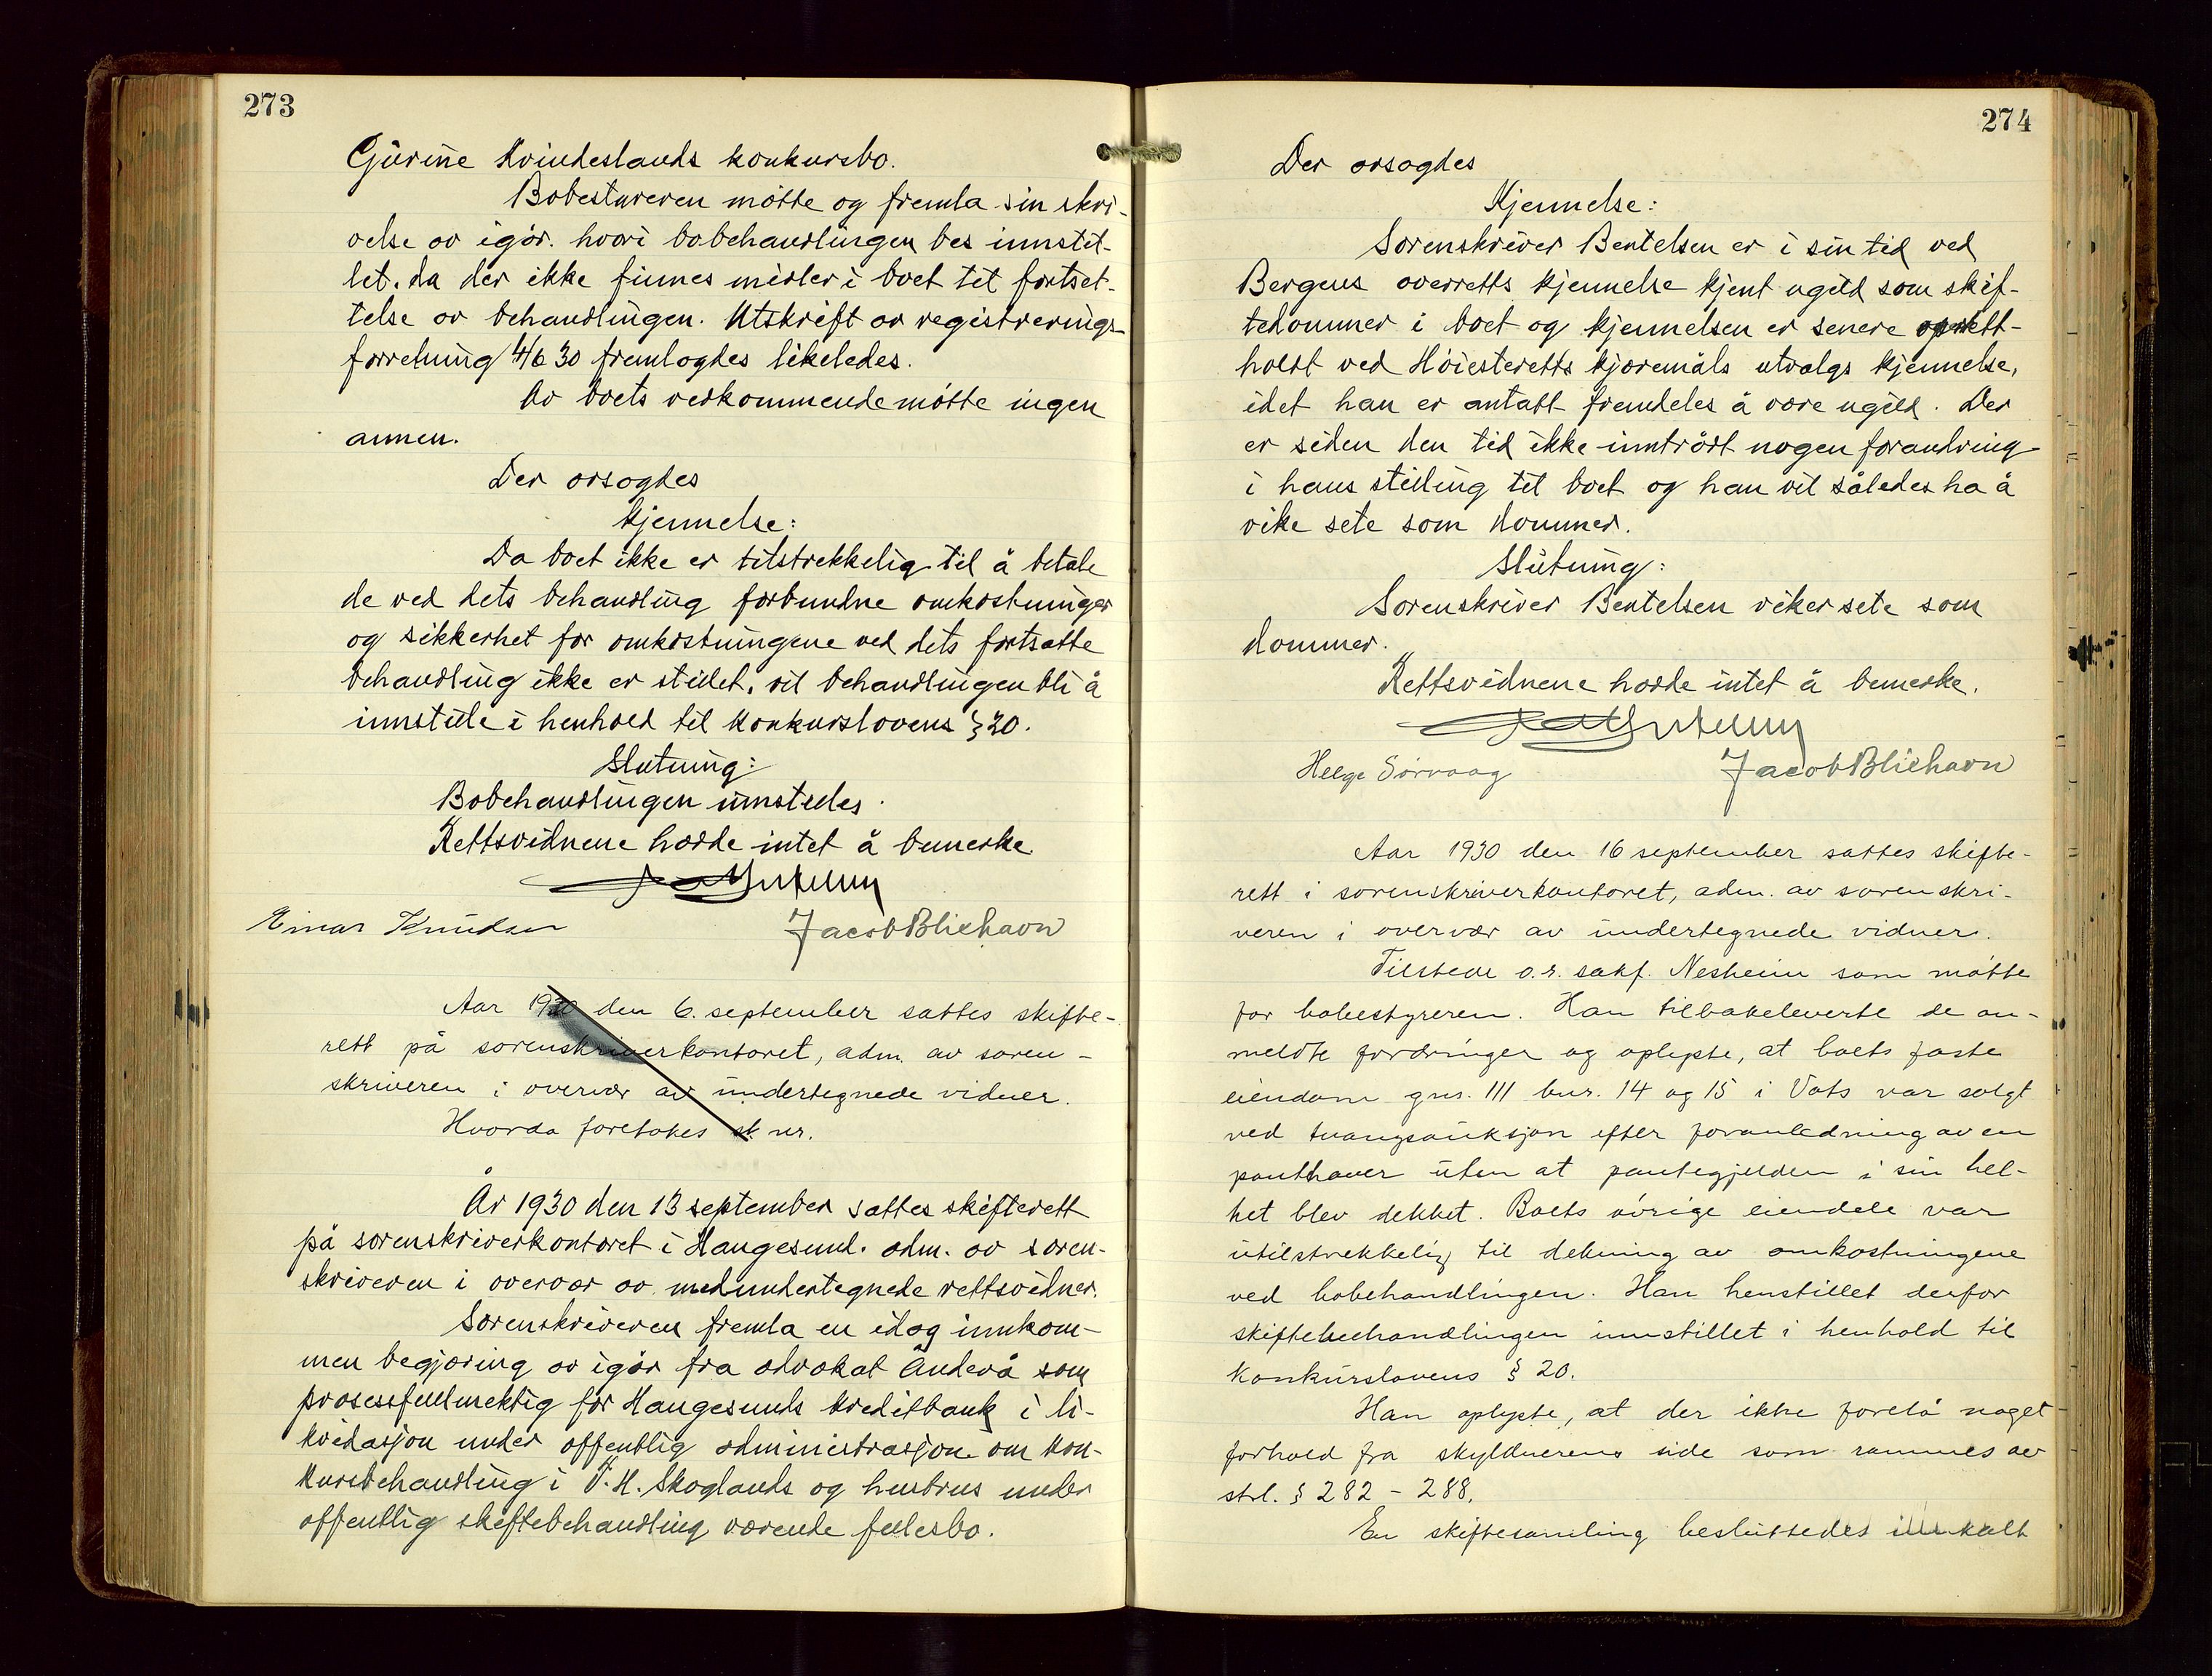 273
Gjurine Kvindeslands konkursbo.
Bobestyreren møtte og fremla sin skri-
velse av igår. hvori bobehandlingen bes innstil-
let. da der ikke finnes midler i boet til fortset-
telse av behandlingen. Utskrift av registrerings-
forretning 4/6 30 fremlagdes likeledes.
Av boets vedkommende møtte ingen
annen.
Der avsagdes
kjennelse:
Da boet ikke er tilstrekkelig til å betale
de ved dets behandling forbundne omkostninger
og sikkerhet for omkostningene ved dets fortsatte
behandling ikke er stillet, vil behandlingen bli å
innstille i henhold til konkurslovens § 20.
Slutning:
Bobehandlingen innstilles.
Rettsvidnene hadde intet å bemerke.
Einar Knudsen Jacob Bliehavn
Aar 1930 den 6. september sattes skifte-
rett på sorenskriverkontoret, adm. av soren-
skriveren i overvær av undertegnede vidner.
Hvorda foretokes sk. nr.
År 1930 den 13 september sattes skifterett
på sorenskriverkontoret i Haugesund. adm. av soren-
skriveren i overvær av medundertegnede rettsvidner.
Sorenskriveren fremla en idag innkom-
men begjæring av igår fra advokat Anderå som
prosessfullmektig for Haugesunds Kreditbank i li-
kvidasjon under offentlig administrasjon om kon-
kursbehandling i T. H. Skoglands og hustrus under
offentlig skiftebehandling værende fellesbo.
274
Der avsagdes
Kjennelse:
Sorenskriver Bentelsen er i sin tid ved
Bergens overretts kjennelse kjent ugild som skif-
tedommer i boet og kjennelsen er senere oprett-
holdt ved Høiesteretts kjæremåls utvalgs kjennelse,
idet han er antatt fremdeles å være ugild. Der
er siden den tid ikke inntrådt nogen forandring
i hans stilling til boet og han vil således ha å
vike sete som dommer.
Slutning:
Sorenskriver Bentelsen viker sete som
dommer.
Rettsvidnene hadde intet å bemerke.
Helge Sørvaag Jacob Bliehavn
Aar 1930 den 16 september sattes skifte-
rett i sorenskriverkontoret, adm. av sorenskri-
veren i overvær av undertegnede vidner.
Tilstede o.r. sakf. Nesheim som møtte
for bobestyreren. Han tilbakeleverte de an-
meldte fordringer og oplyste, at boets faste
eiendom gnr. 111 bnr. 14 og 15 i Vats var solgt
ved tvangsauksjon efter foranledning av en
panthaver uten at pantegjelden i sin hel-
het blev dekket. Boets øvrige eiendele var
utilstrekkelig til dekning av omkostningene
ved bobehandlingen. Han henstillet derfor
skiftebehandlingen innstillet i henhold til
Konkurslovens § 20.
Han oplyste, at der ikke forelå noget
forhold fra skyldnerens side som rammes av
strl. § 282 - 288.
En skiftesamling besluttedes innkalt